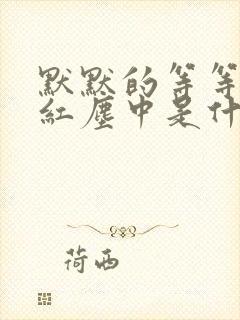 默默的等等
紅塵中是什
荷西